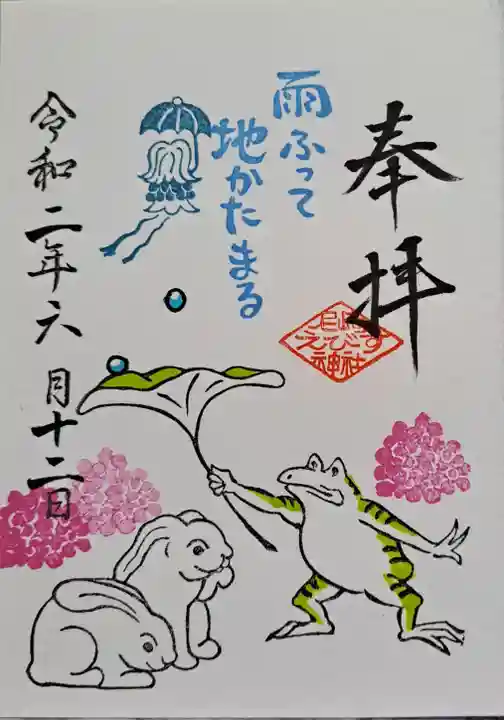 奉拝
尼崎
えびす
神社
雨ふって
地かたまる
令和二年六月十二日